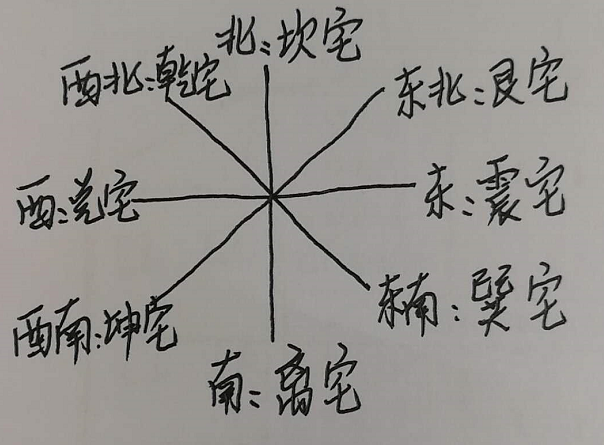 北:坎宅
西北:乾宅
东北:艮宅
西:兑宅
东:震宅
东南:巽宅
西南:坤宅
南:离宅